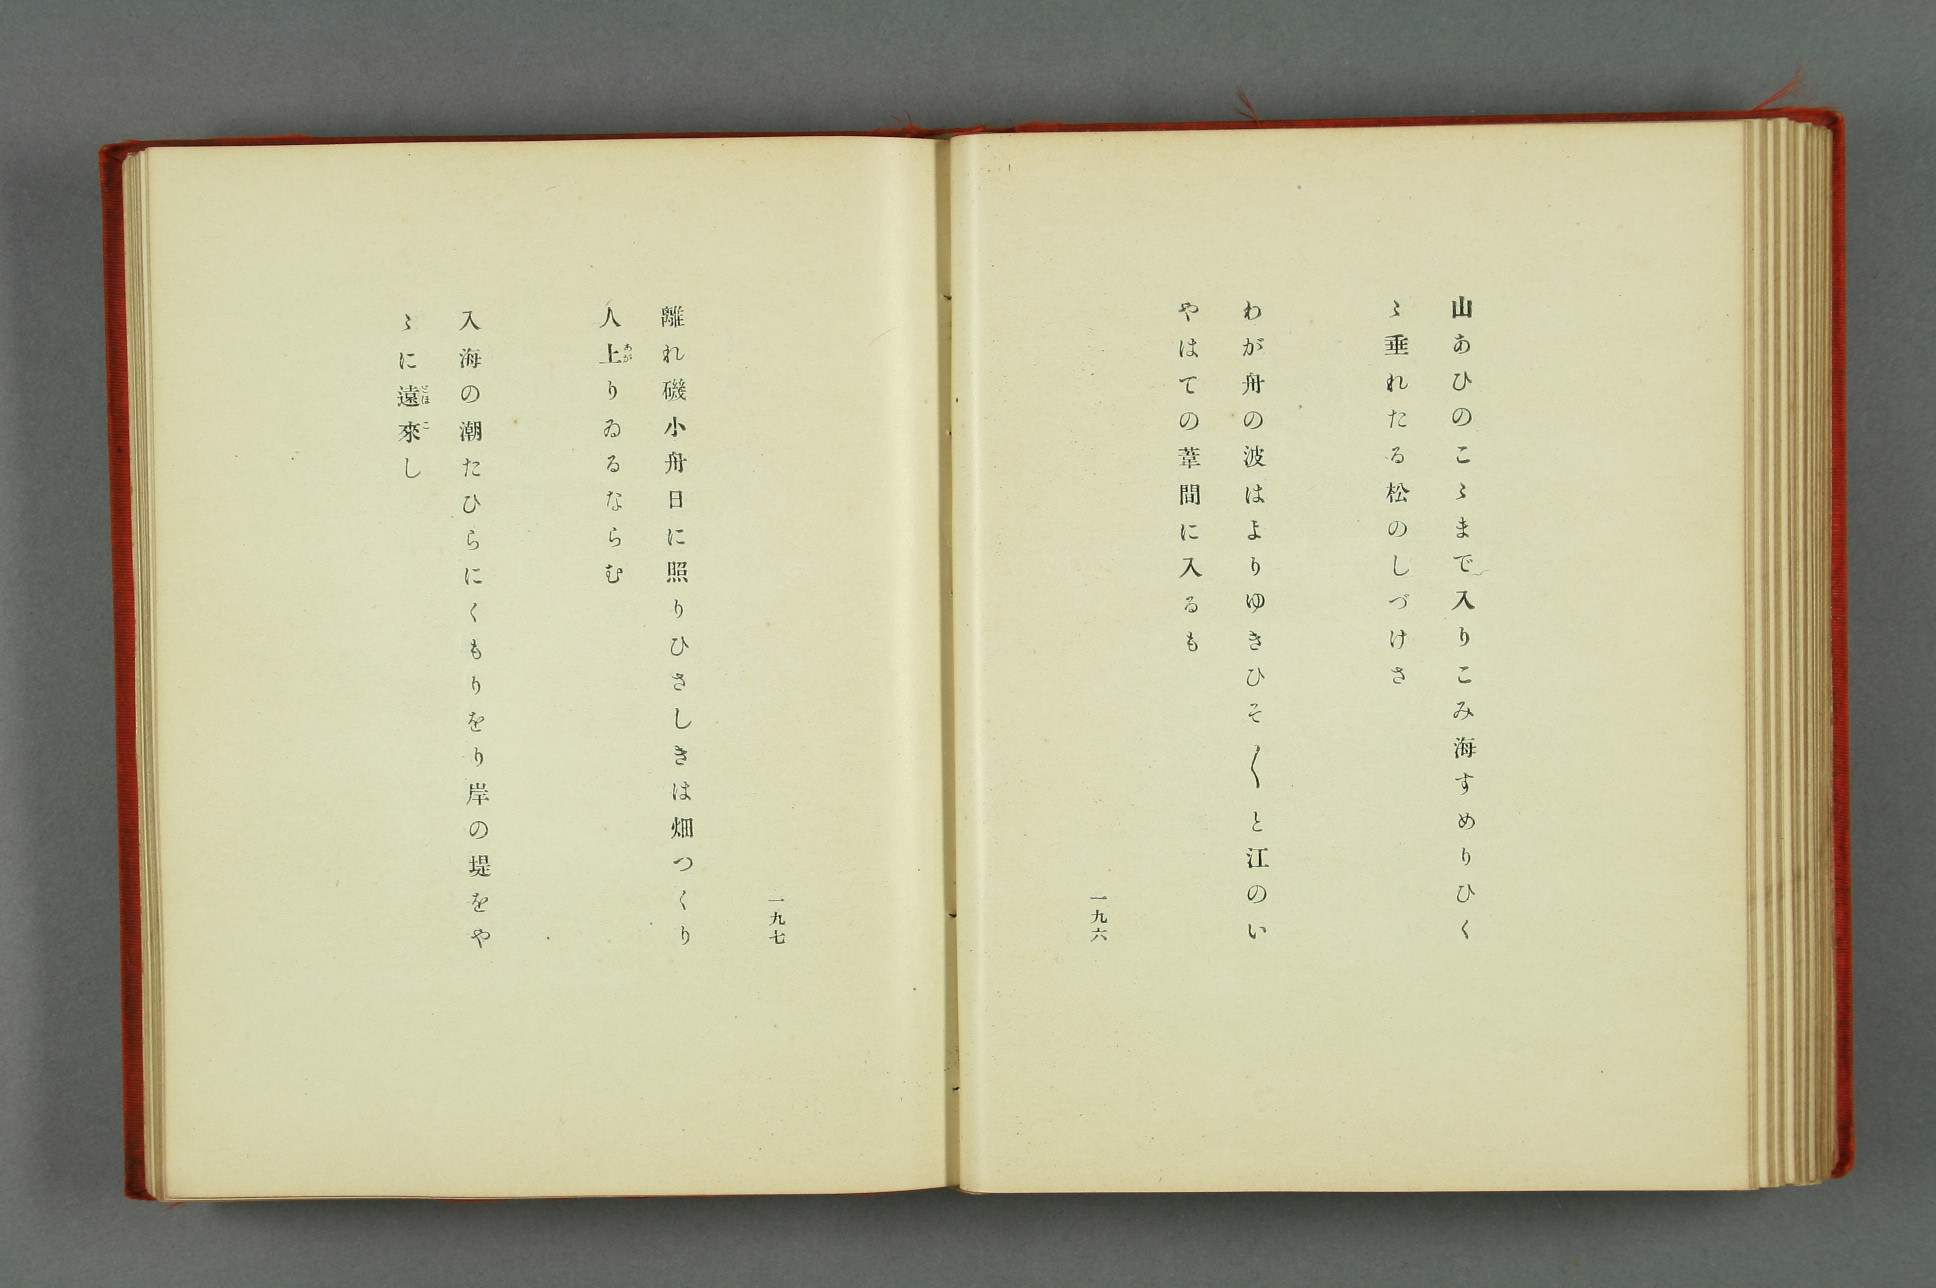 山あひのこゝまで入りこみ海すめりひく
ゝ垂れたる松のしづけさ
わが舟の波はよりゆきひそ〱と江のい
やはての葦間に入るも
一九六
離れ磯小舟日に照りひさしきは畑つくり
人上りゐるならむ
あが
入海の潮たひらにくもりをり岸の堤をや
ゝに遠來し
とほこ
一九七